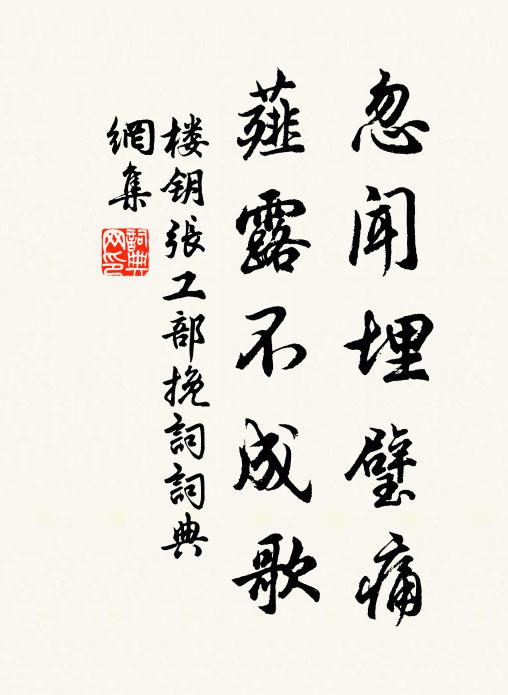 忽闻埋璧痛
薤露不成歌
楼钥張工部挽詞詞典
網集
詞典网印